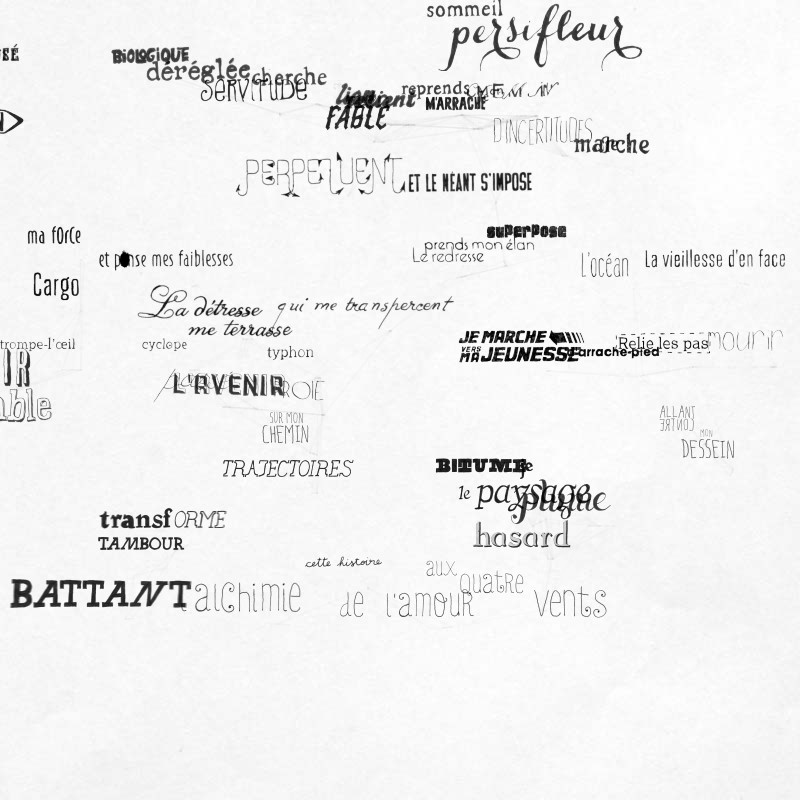 sommeil
persifleur
SÉ
BIOLOGIQUE
déréglée cherche
SERVITUDE
reprends
M'ARRACHE
FABLE
D'INCERTITUDES
marche
PERPETUENT ET LE NÉANT S'IMPOSE
ma fORCe
superpose
prends mon élan
Le redresse
et pense mes faiblesses
L'océan La vieillesse d'en face
Cargo
La détresse qui me transpercent
me terrasse
JE MARCHE
VERS
MA JEUNESSE d'arrache-pied
Relie les pas mourir
trompe-l'œil cyclope
typhon
IR
L'AVENIR
able
SUR MON
CHEMIN
ALLANT
CONTRE
MON
DESSEIN
TRAJECTOIRES
BITUME
le paysage
hasard
transfORME
TAMBOUR
cette histoire
aux
quatre
BATTANT alchimie de l'amour vents